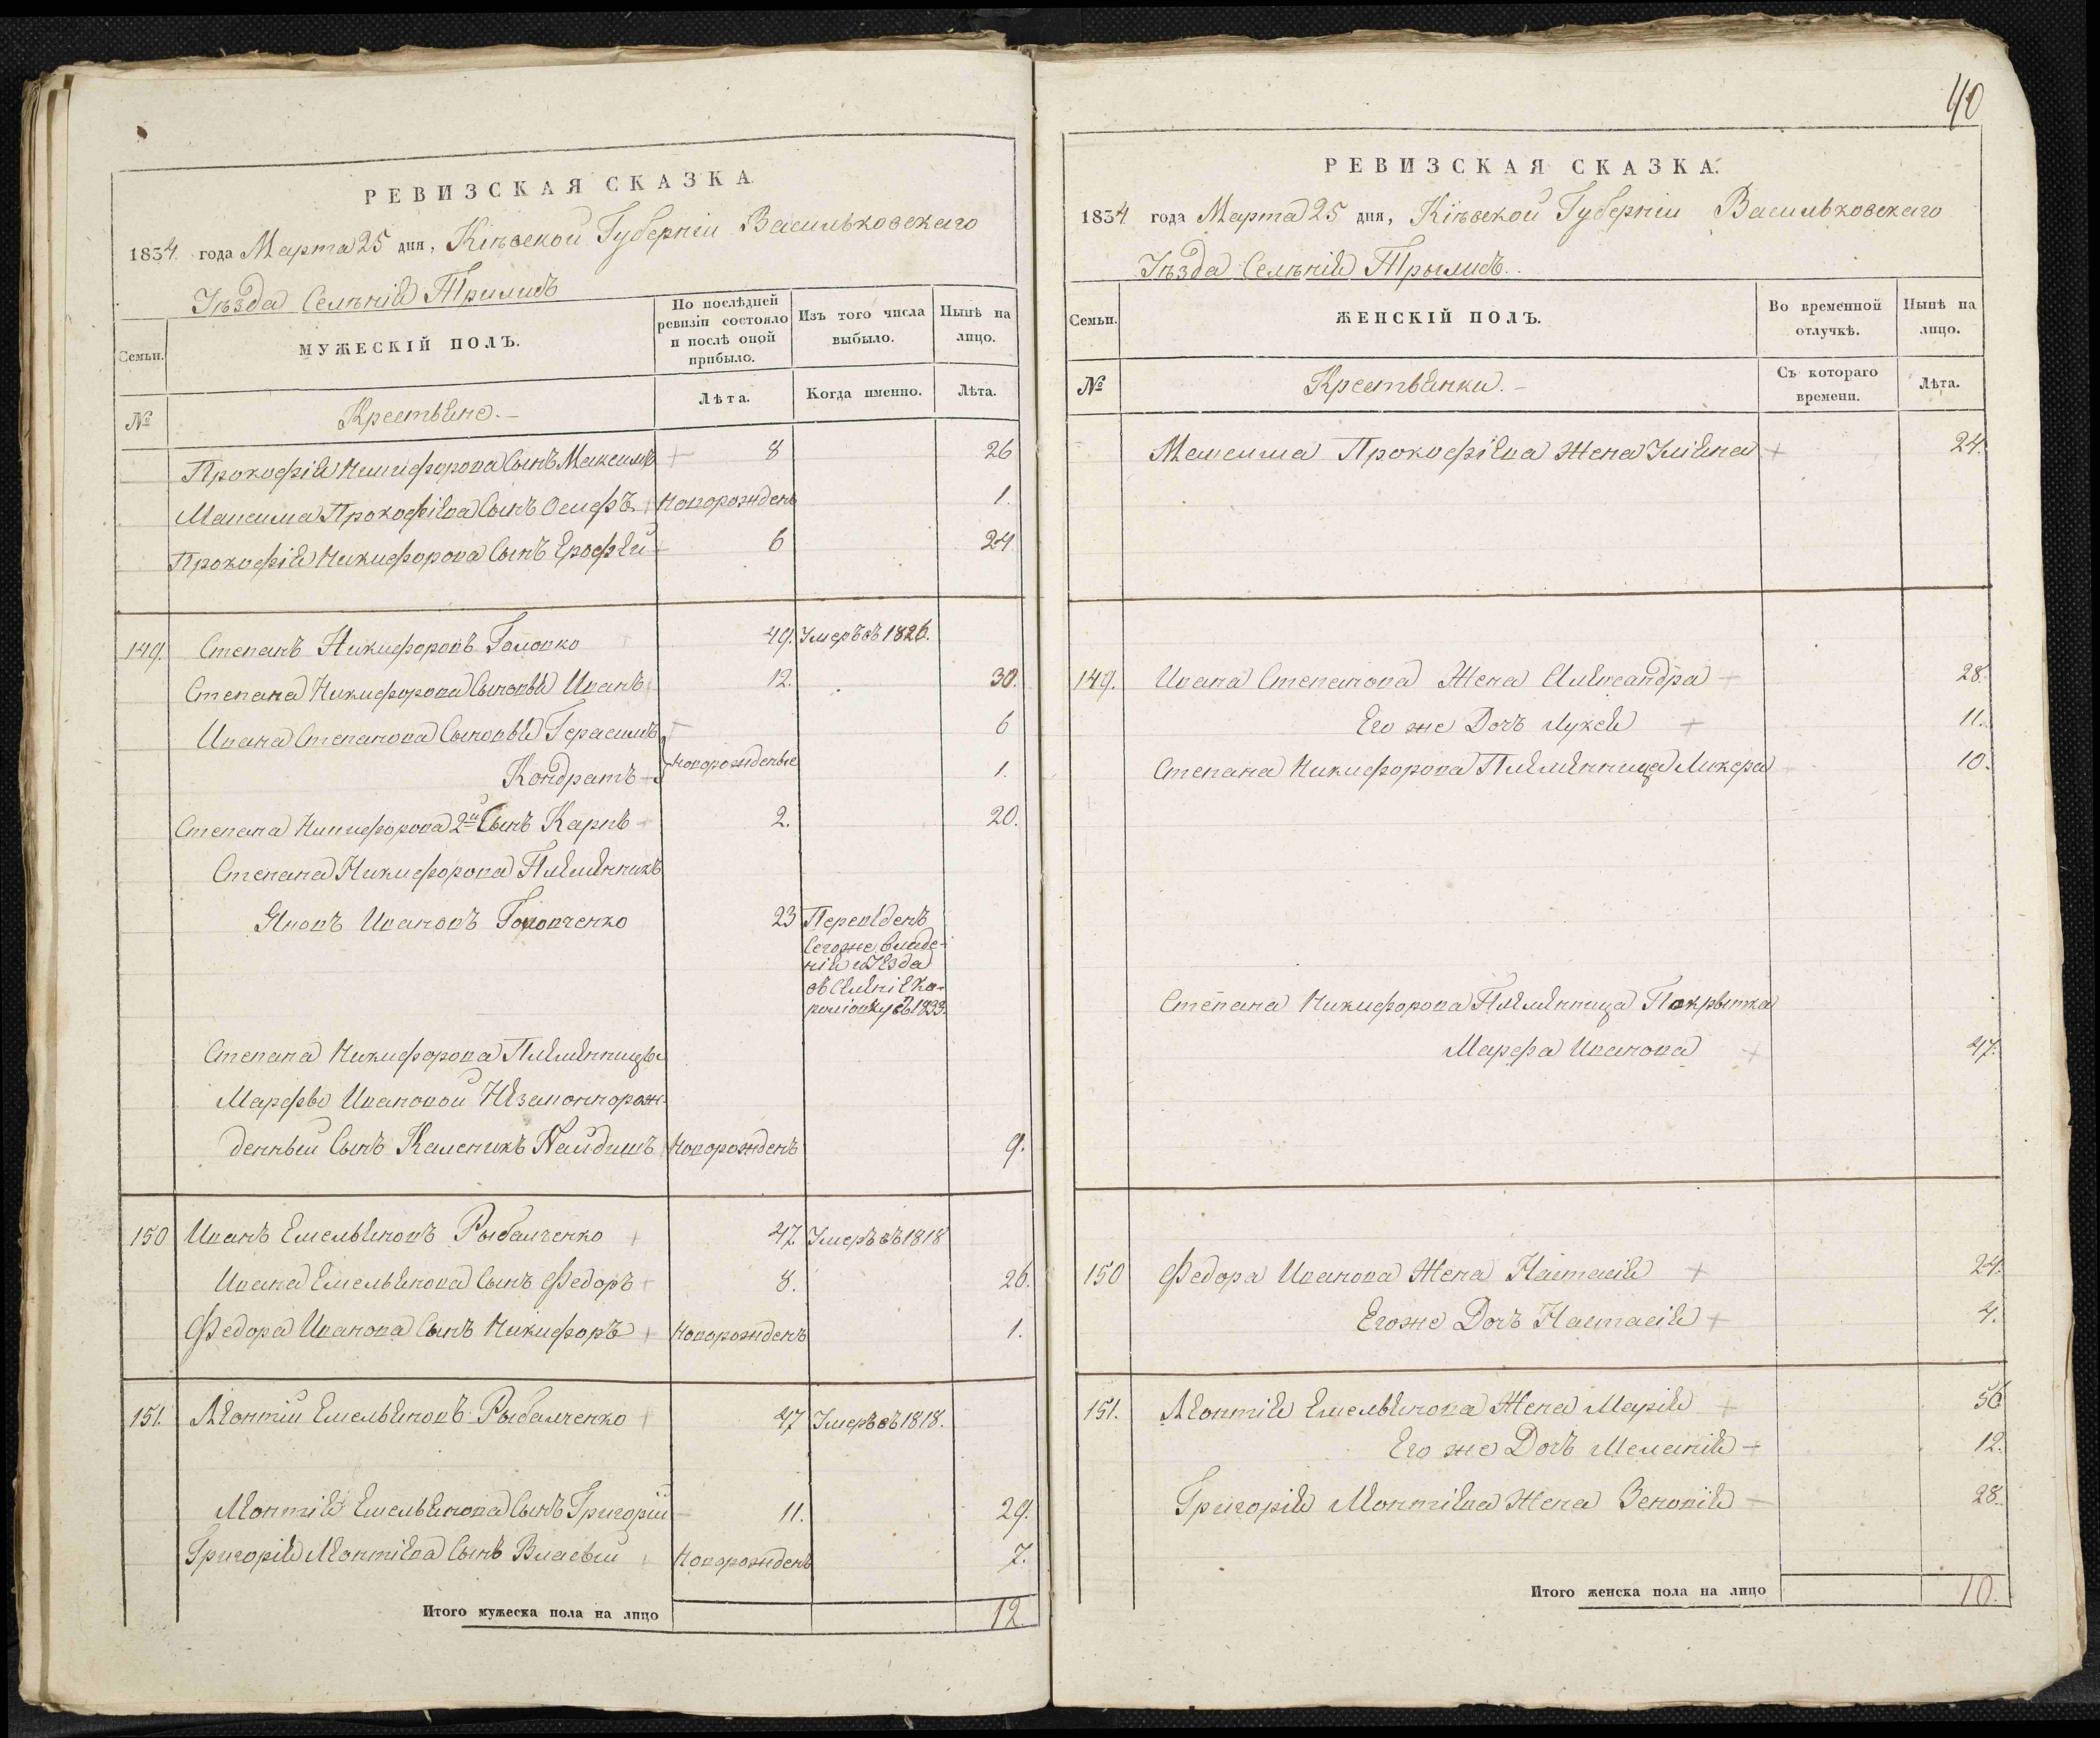 РЕВИЗСКАЯ СКАЗКА
1834 года Марта 25 дня, Кіевской Губерніи Васильковскаго
Уѣзда Селѣнія Трилисъ
Семьи.
МУЖЕСКІЙ ПОЛЪ.
По послѣдней ревизіи состояло и послѣ оной прибыло.
Изъ того числа выбыло.
Нынѣ на лицо.
№
Крестьяне.
Лѣта.
Когда именно.
Лѣта.
Прокофія Никифорова Сынъ Максимъ 8 26
Максима Прокофіева Сынъ Осифъ Новорожденъ 1.
Прокофія Никифорова Сынъ Ерофей 6 24
149. Степанъ Никифоровъ Головко 49. Умеръ въ 1826.
Степана Никифорова Сыновья Иванъ 12. 30.
Ивана Степанова Сыновья Герасимъ 6
Кондратъ Новорожденые 1.
Степана Никифорова 2й Сынъ Карпъ 2. 20.
Степана Никифорова Племянникъ
Яковъ Ивановъ Головченко 23 Переведенъ
Сегоже владе-
нія и Уезда
въ Селеніе Ка-
ролювку въ 1833.
Степана Никифорова Племянницы
Марфы Ивановой Незаконнорож-
денный Сынъ Каленикъ Найдишъ Новорожденъ 9.
150 Иванъ Емельяновъ Рыбалченко 47. Умеръ въ 1818
Ивана Емельянова Сынъ Федоръ 8. 26.
Федора Иванова Сынъ Никифоръ Новорожденъ 1.
151. Леонтій Емельяновъ Рыбалченко 47 Умеръ въ 1818.
Леонтія Емельянова Сынъ Григорій 11. 29.
Григорія Леонтіева Сынъ Власый Новорожденъ 7.
Итого мужеска пола на лицо 12.
40
РЕВИЗСКАЯ СКАЗКА.
1834 года Марта 25 дня, Кіевской Губерніи Васильковскаго
Уѣзда Селѣнія Трылисъ.
Семьи.
ЖЕНСКІЙ ПОЛЪ.
Во временной отлучкѣ.
Нынѣ на лицо.
№
Крестьянки.
Съ котораго времени.
Лѣта.
Максима Прокофіева Жена Уліяна 24.
149. Ивана Степанова Жена Александра 28.
Его же Дочъ Лукея 11.
Степана Никифорова Племянница Ликера 10.
Степана Никифорова Племянница Покрытка
Марфа Иванова 47.
150 Федора Иванова Жена Настасія 24.
Егоже Дочъ Настасія 4.
151. Леонтія Емельянова Жена Марія 56
Его же Дочъ Меланія 12.
Григорія Леонтіева Жена Зеновія 28.
Итого женска пола на лицо 10.